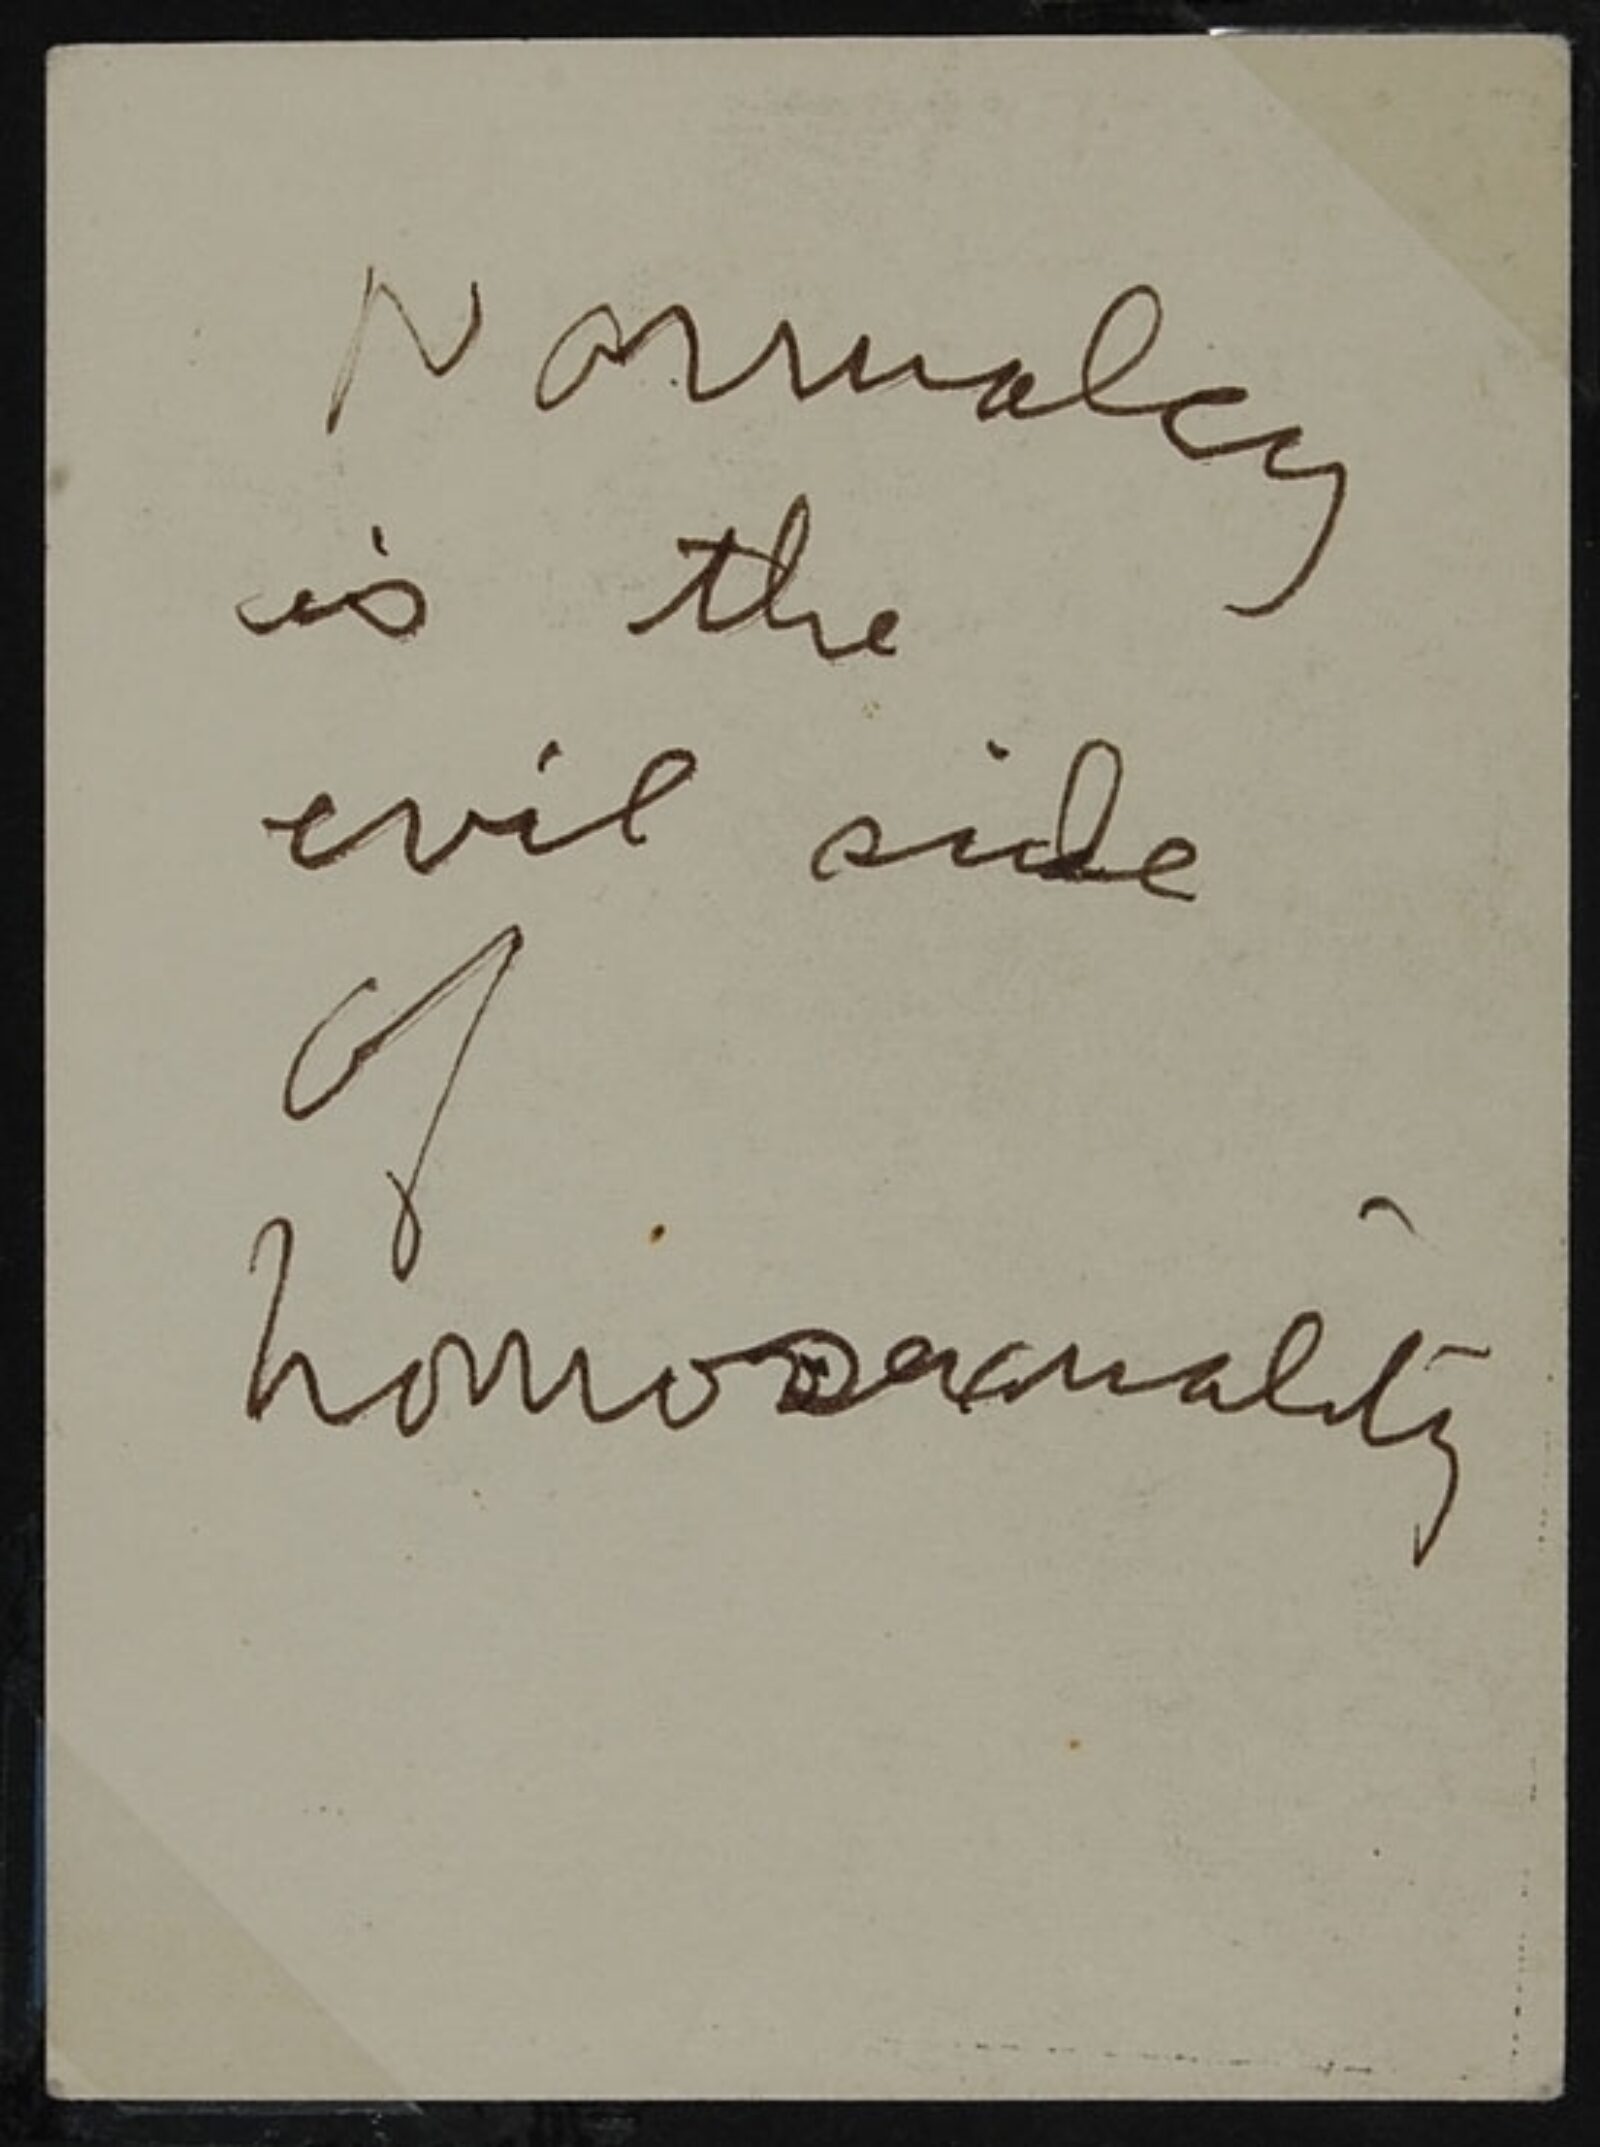 Normalcy
is the
evil side
of
homosexuality